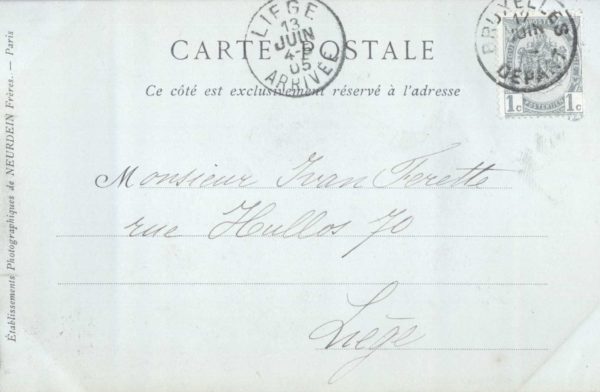 LIEGE
13
JUIN
4-5
05
ARRIVÉE
BRUXELLES
12
JUIN
DEPART
CARTE POSTALE
Ce côté est exclusivement réservé à l'adresse
1c 1c
Monsieur Ivan Ferette
rue Hullos 70
Liège
Établissements Photographiques de NEURDEIN Frères. — Paris